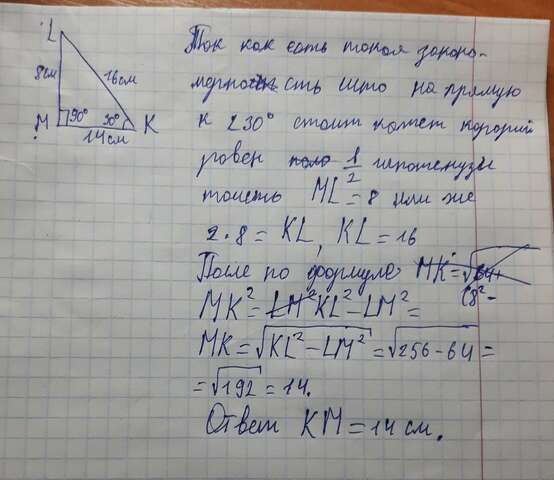 L
8см
16см
90°
30°
M
K
14см
Так как есть такая законо-
мерность што на прямую
к ∠30° стоит катет который
равен 1/2 гипотенузы
тоисть ML = 8 или же
2·8 = KL, KL = 16
После по формуле MK = √64+
(8²-
MK² = LM² KL² - LM² =
MK = √KL² - LM² = √256 - 64 =
= √192 = 14.
Ответ KM = 14 см.